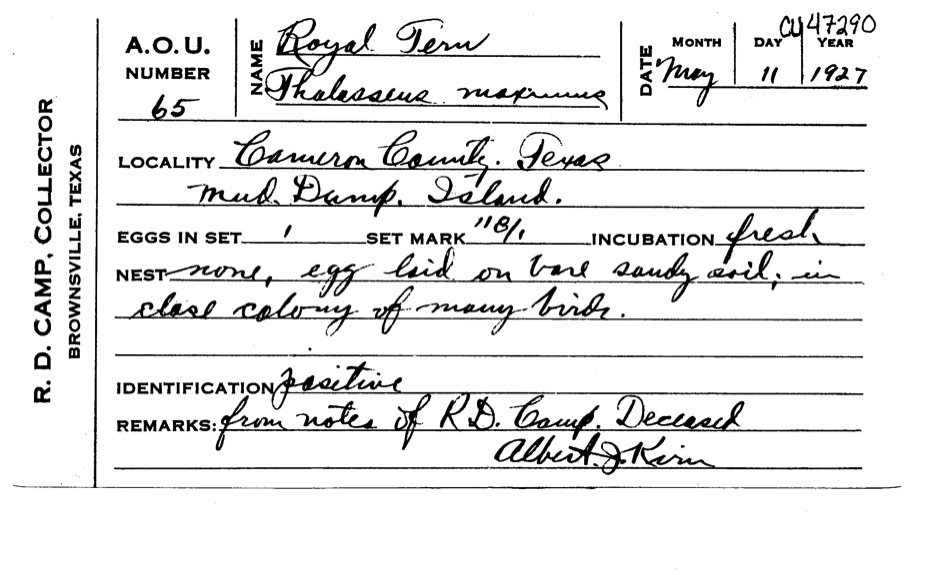 CU47290
A.O.U. NUMBER 65
NAME Royal Tern
Thalasseus maximus
DATE MONTH May DAY 11 YEAR 1927
R. D. CAMP, COLLECTOR
BROWNSVILLE, TEXAS
LOCALITY Cameron County. Texas
Mud. Dump. Island.
EGGS IN SET 1 SET MARK "B/1 INCUBATION fresh
NEST none, egg laid on bare sandy soil; in
close colony of many birds.
IDENTIFICATION positive
REMARKS: from notes of R.D. Camp. Deceased
Albert. J. Kirn